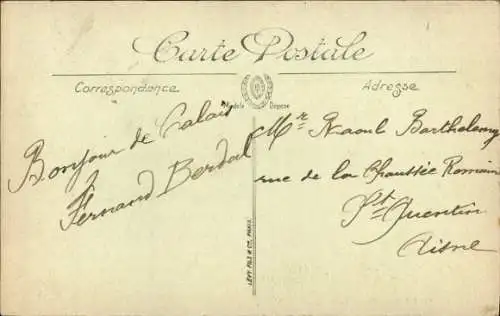 Carte Postale
Correspondance
Adresse
Modèle Déposé
Bonjour de Calais
Fernand Berdal
Mr Raoul Barthelemy
rue de la Chaussée Romain
St Quentin
Aisne
LEVY FILS & CIE, PARIS